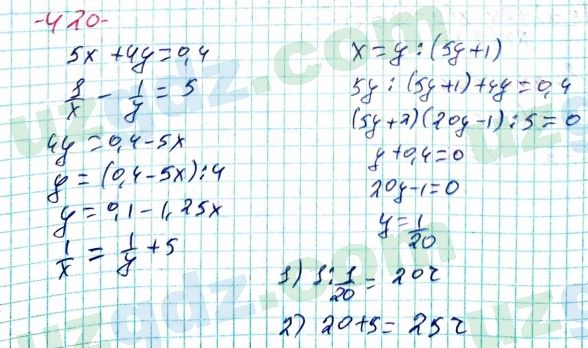 -420-
5x + 4y = 0,4
1/x - 1/y = 5
4y = 0,4 - 5x
y = (0,4 - 5x) : 4
y = 0,1 - 1,25x
1/x = 1/y + 5
x = y : (5y + 1)
5y : (5y + 1) + 4y = 0,4
(5y + 2)(20y - 1) : 5 = 0
y + 0,4 = 0
20y - 1 = 0
y = 1/20
1) 1 : 1/20 = 20г
2) 20 + 5 = 25г
uzgdz.com